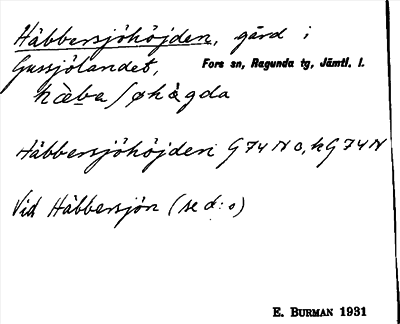 Häbbersjöhöjden, gård i
Gussjölandet, Fors sn, Ragunda tg, Jämtl. l.
hæ̀ba/øhå̀gda
Häbbersjöhöjden G74N o, kG74N
Vid Häbbersjön (se d:o)
E. BURMAN 1931